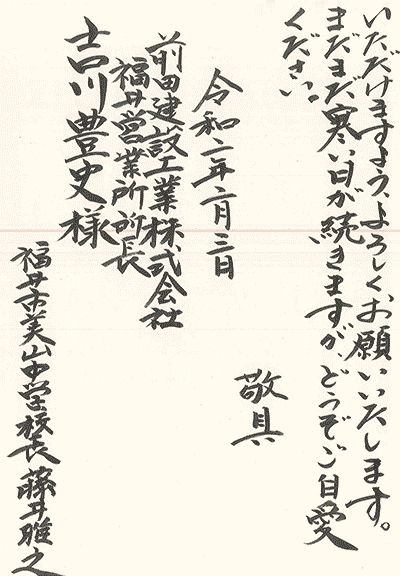 いただけますよう、よろしくお願いいたします。
まだまだ寒い日が続きますが、どうぞご自愛
ください。
敬具
令和二年二月三日
前田建設工業株式会社
福井営業所所長
吉川豊史様
福井市美山中学校長 藤井雅之